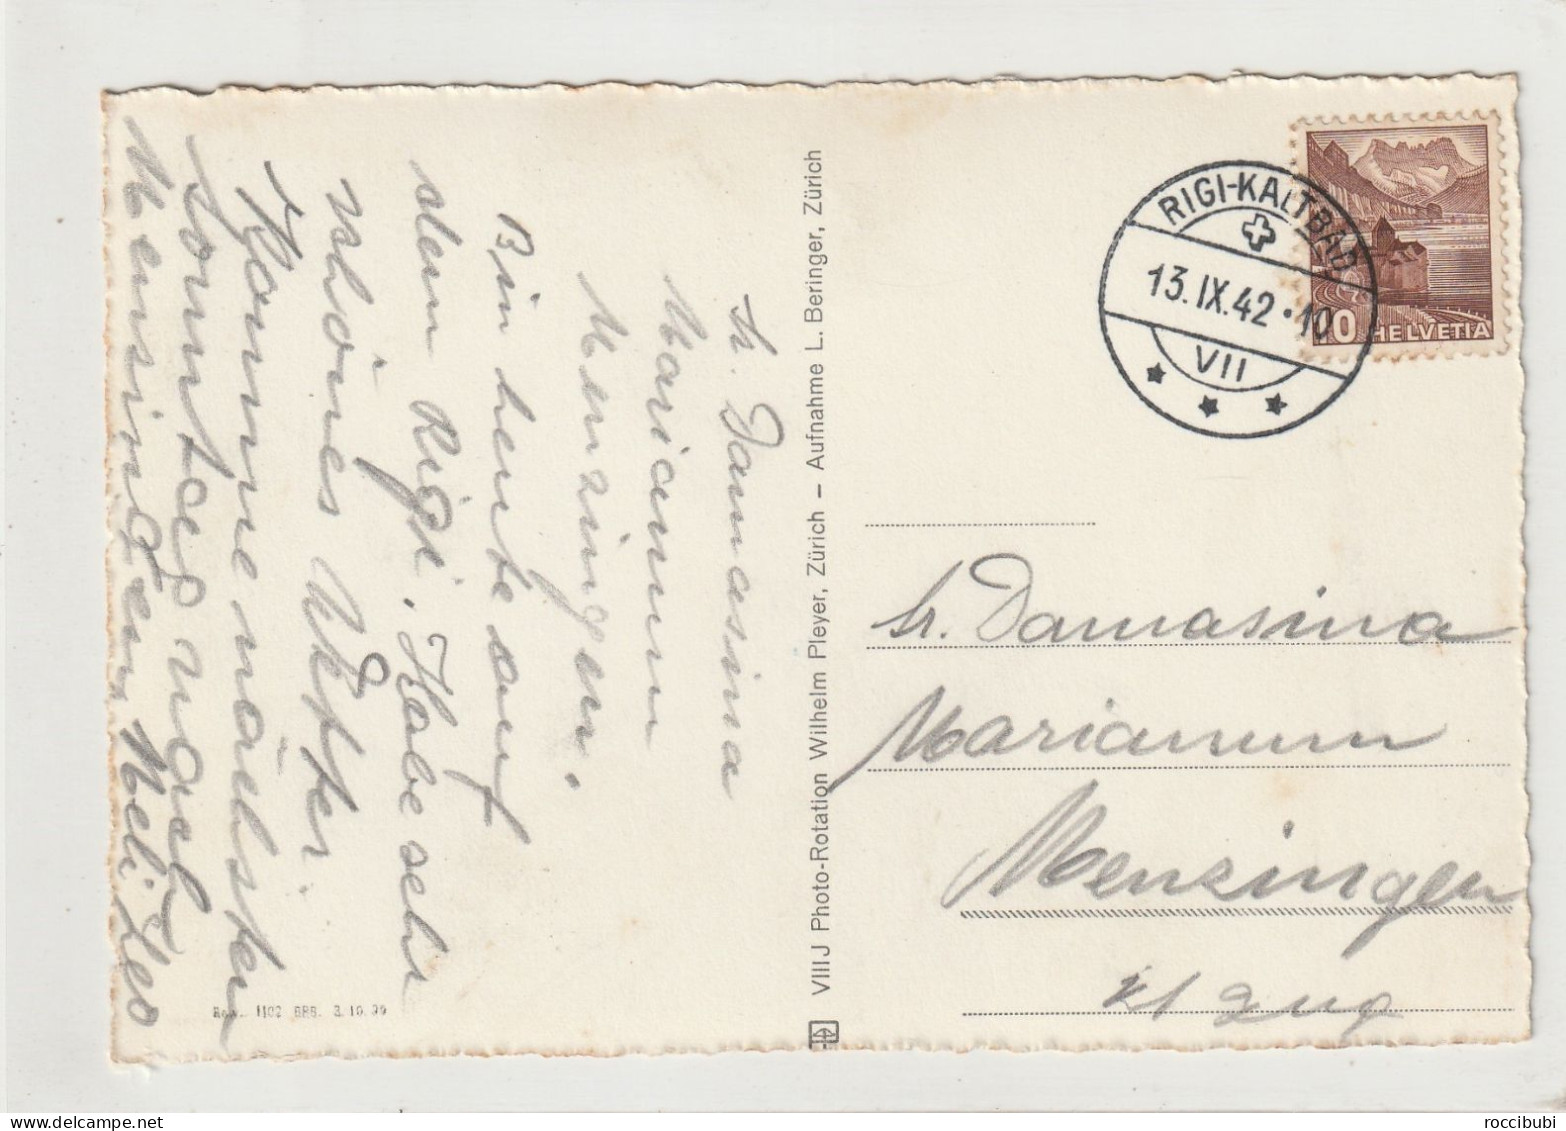 Sr. Damasina
Marianum
Menzingen.
Bin heute auf
dem Rigi. Habe sehr
schönes Wetter.
Komme nächsten
Sonntag nach
Mensingen, Meli Leo
VIII J Photo-Rotation Wilhelm Pleyer, Zürich – Aufnahme L. Beringer, Zürich
RIGI-KALTBAD
13.IX.42·10
VII
10 HELVETIA
Sr. Damasina
Marianum
Menzingen
Kt Zug
1102 BRB. 3.10.39
roccibubi